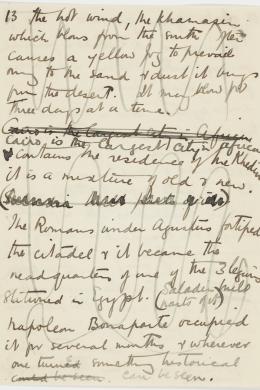 13 the hot wind, the khamasin
which blows from the south often
causes a yellow fog to prevail
owing to the sand & dust it brings
from the desert. it may blow for
three days at a time.
Cairo is the largest city in African
Cairo is the largest city in Africa
& contains the residence of the Khedive
it is a mixture of old & new.
The Romans under Agustus fortified
the citadel & it became the
headquarters of one of the 3 legions
stationed in Egypt. Saladin
(parts of)
Napoleon Bonaparte occupied
it for several months & wherever
one turned something historical
could be seen. can be seen.